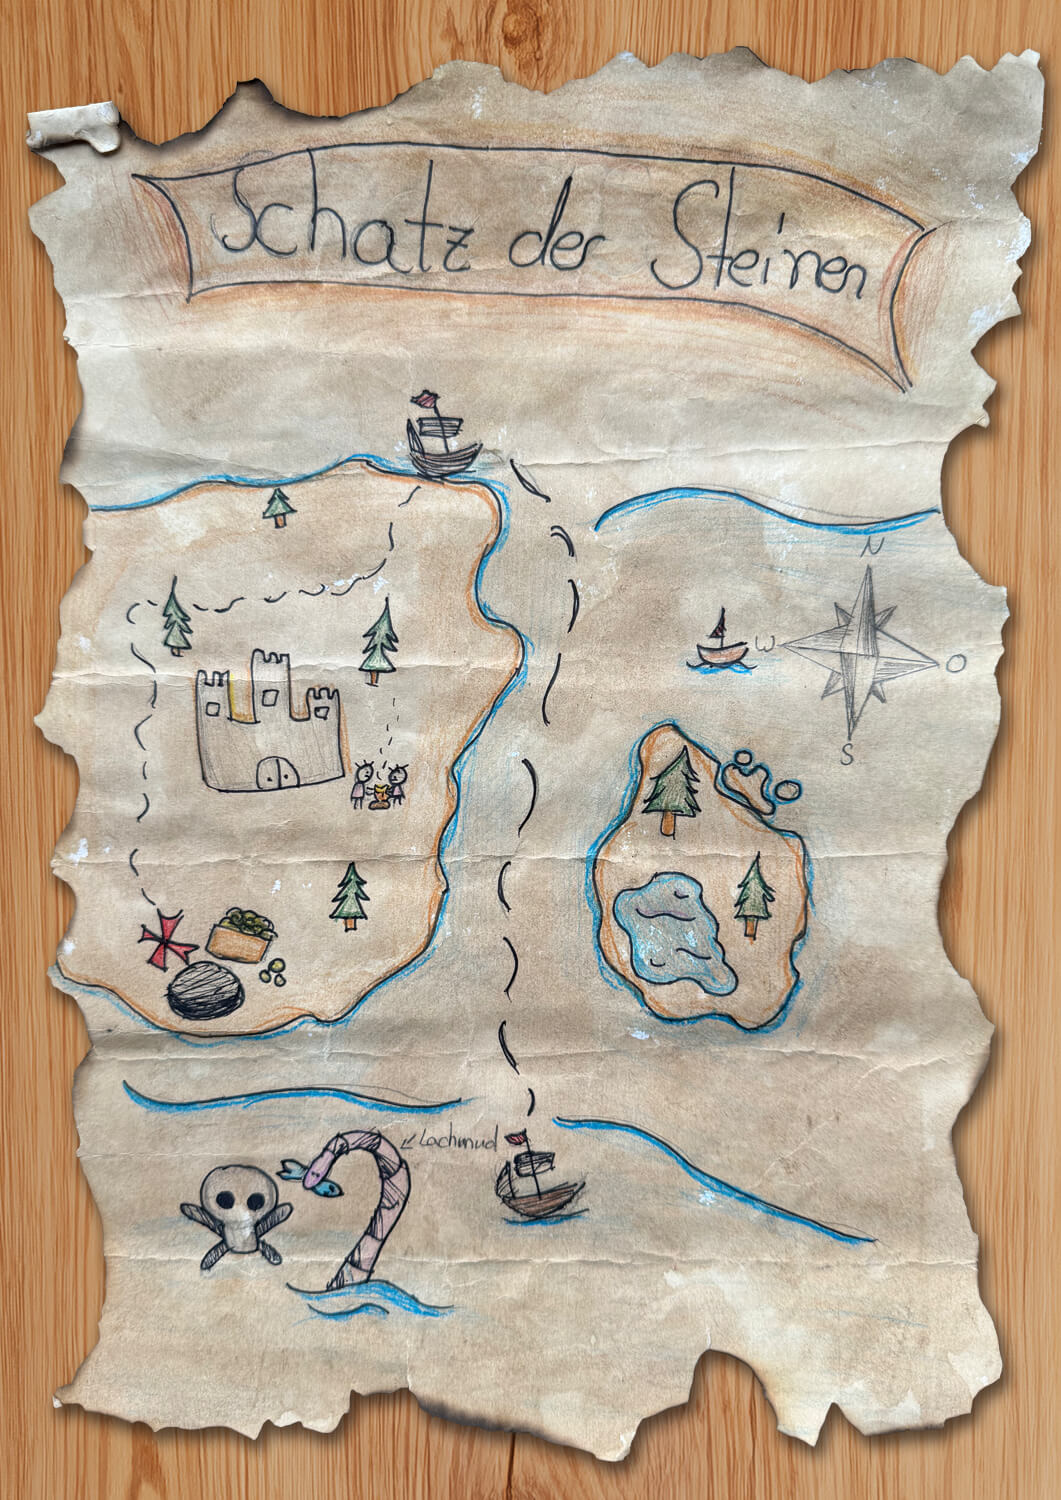 Schatz der Steinen
N
W
O
S
Lachmud